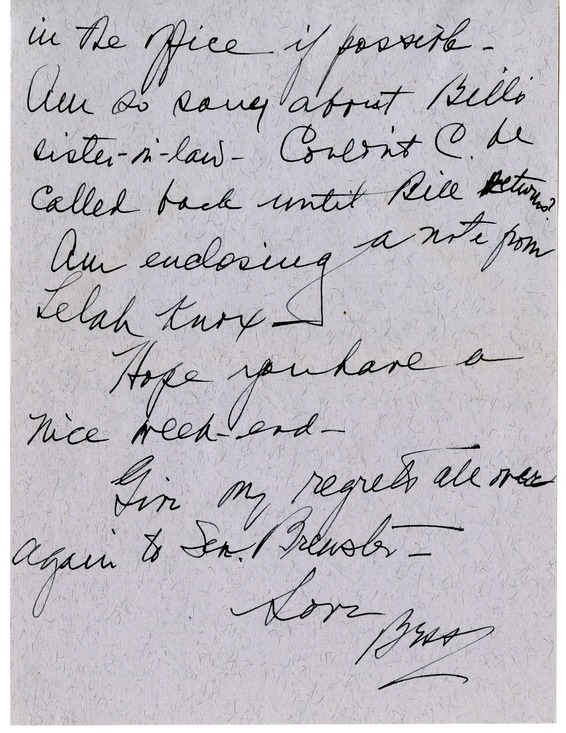 in the office if possible -
Am so sorry about Bill's
sister-in-law - Couldn't C. be
called back until Bill returns?
Am enclosing a note from
Lelah Knox -
Hope you have a
nice week-end -
Give my regrets all over
again to Sen. Brewster -
Love
Bess